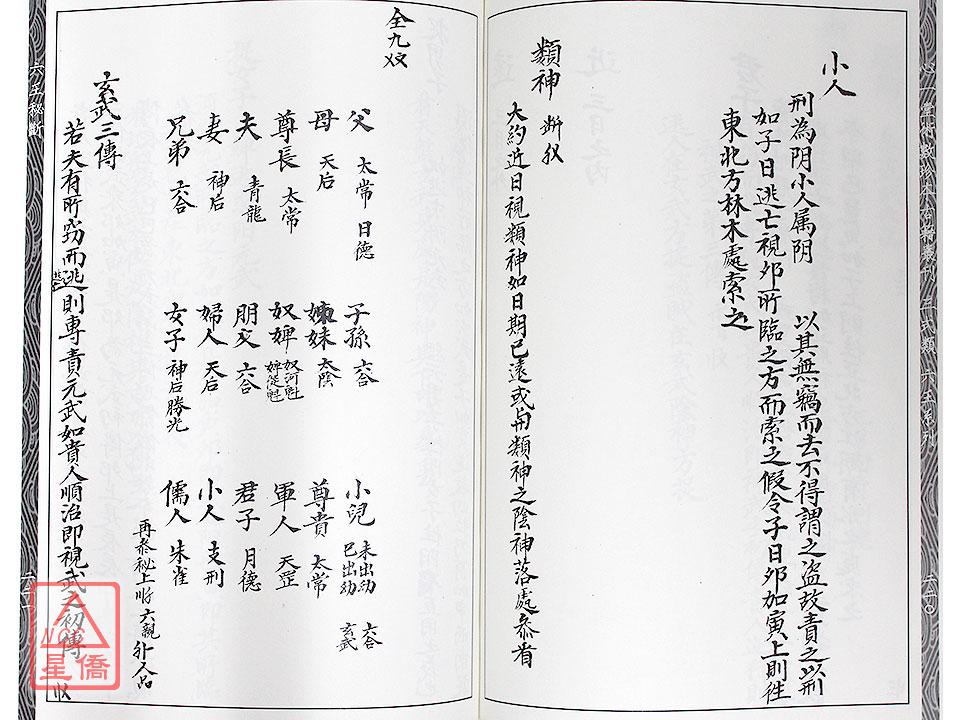 小人
刑為阴小人属阴　以其無竊而去不得謂之盜故責之以刑
如子日逃亡視夘所臨之方而索之假令子日夘加寅上則徃
東北方林木處索之
類神
大約近日視類神如日期已遠或与類神之陰神落處叅看
父　太常　日德　子孫　六合　小兒　未出幼　六合　已出幼　玄武
母　天后　姊妹　太陰　尊貴　太常
尊長　太常　奴婢　奴河魁　婢從魁　軍人　天罡
夫　青龍　朋友　六合　君子　月德
妻　神后　婦人　天后　小人　支刑
兄弟　六合　女子　神后勝光　儒人　朱雀
再叅秘上　六親外人品
玄武三傳
若夫有所窃而逃則專責元武如貴人順治即視武之初傳
六壬秘斷
六壬秘斷
星僑